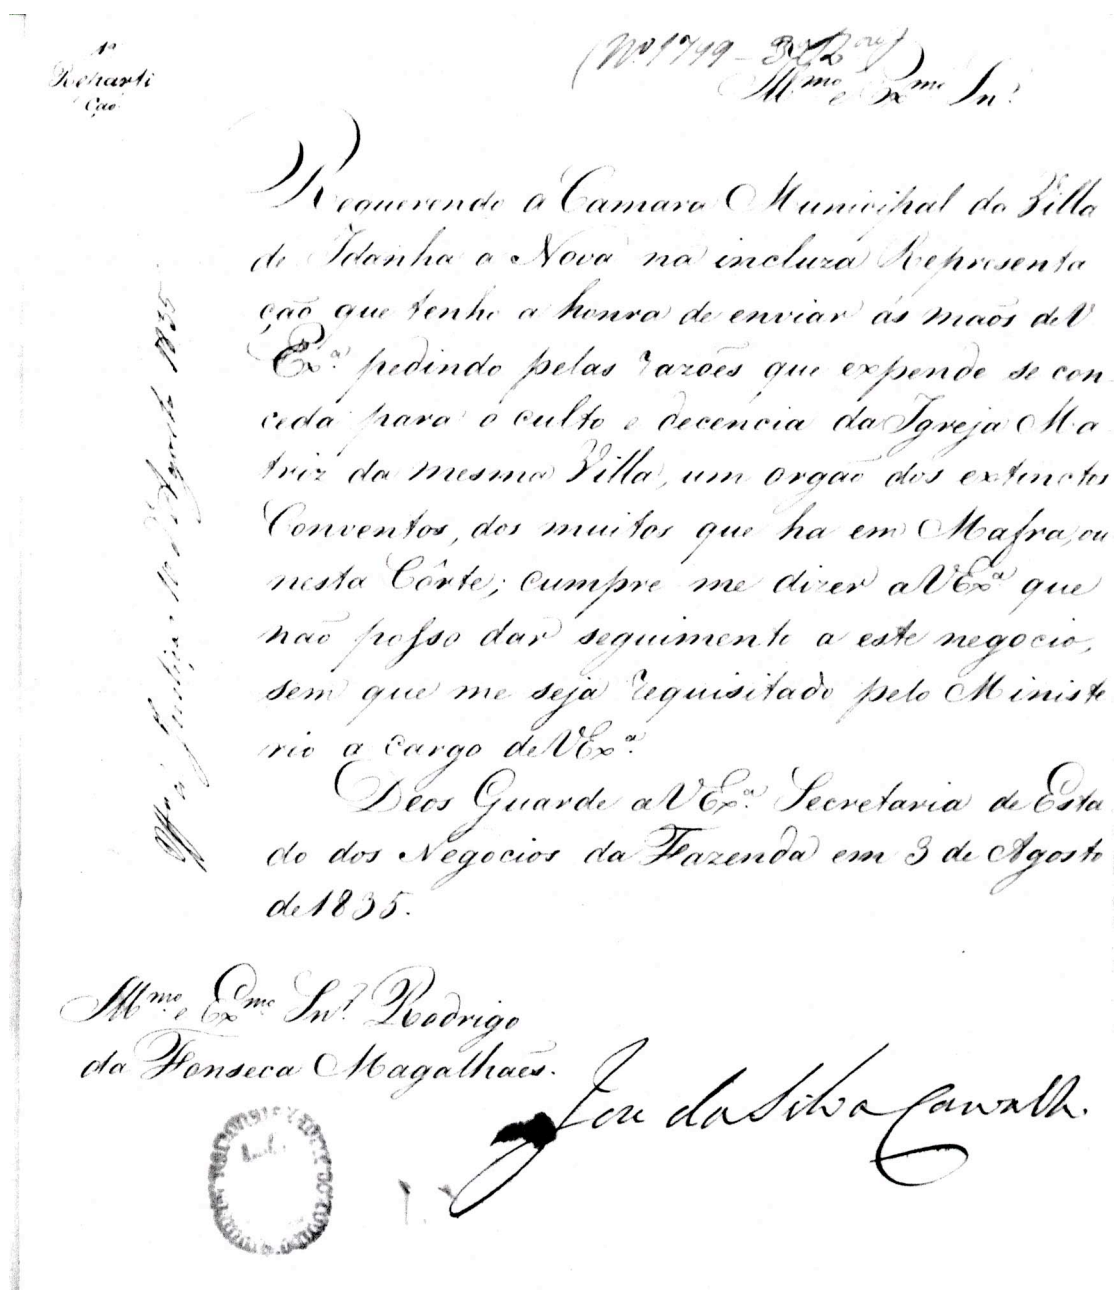 1ª
Reparti
ção
(Nº 1799 – 3ª
Illmo e Exmo Snr.
Requerendo a Camara Municipal da Villa
de Idanha a Nova na incluza Representa
ção que tenho a honra de enviar ás maõs de V
Exª. pedindo pelas razões que expende se con-
ceda para o culto e decencia da Igreja Ma-
triz da mesma Villa, um orgaõ dos extinctos
Conventos, dos muitos que ha em Mafra, ou
nesta Côrte; cumpre me dizer a V Exª que
não posso dar seguimento a este negocio,
sem que me seja requisitado pelo Ministe
rio a cargo de V Exª.
Deos Guarde a V Exª. Secretaria de Esta
do dos Negocios da Fazenda em 3 de Agosto
de 1835.
Illmo e Exmo Snr. Rodrigo
da Fonseca Magalhaẽs.
José da Silva Carvalho.
á Justiça a 10 d'Agosto 1835